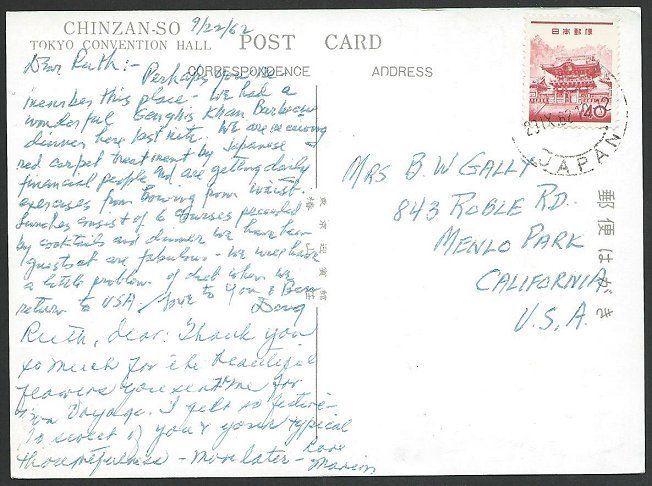 CHINZAN-SO 9/22/62
TOKYO CONVENTION HALL
POST CARD
CORRESPONDENCE
ADDRESS
Dear Ruth:- Perhaps you re
members this place - We had a
wonderful Genghis Khan Barbecue
dinner here last nite. We are receiving
red carpet treatment by Japanese
financial people and are getting daily
exercises from bowing from waist.
Lunches consist of 6 courses preceeded
by cocktails and dinners we have been
guests at are fabulous - we will have
a little problem of diet when we
return to USA. Love to you & Bern
Doug
Ruth, dear: Thank you
so much for the beautiful
flowers you sent me for
Bon Voyage. I felt so festive -
So sweet of you & your typical
thoughtfulness - More later - Love
Marion
日本郵便
40
JAPAN
MRS B. W GALLY
843 ROBLE RD.
MENLO PARK
CALIFORNIA
U.S.A.
郵便はがき